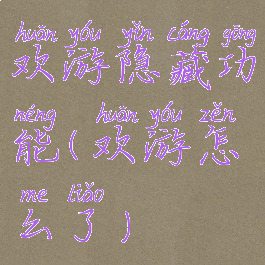 huān yóu yǐn cáng gōng
欢游隐藏功
néng huān yóu zěn
能(欢游怎
me liǎo
么了)